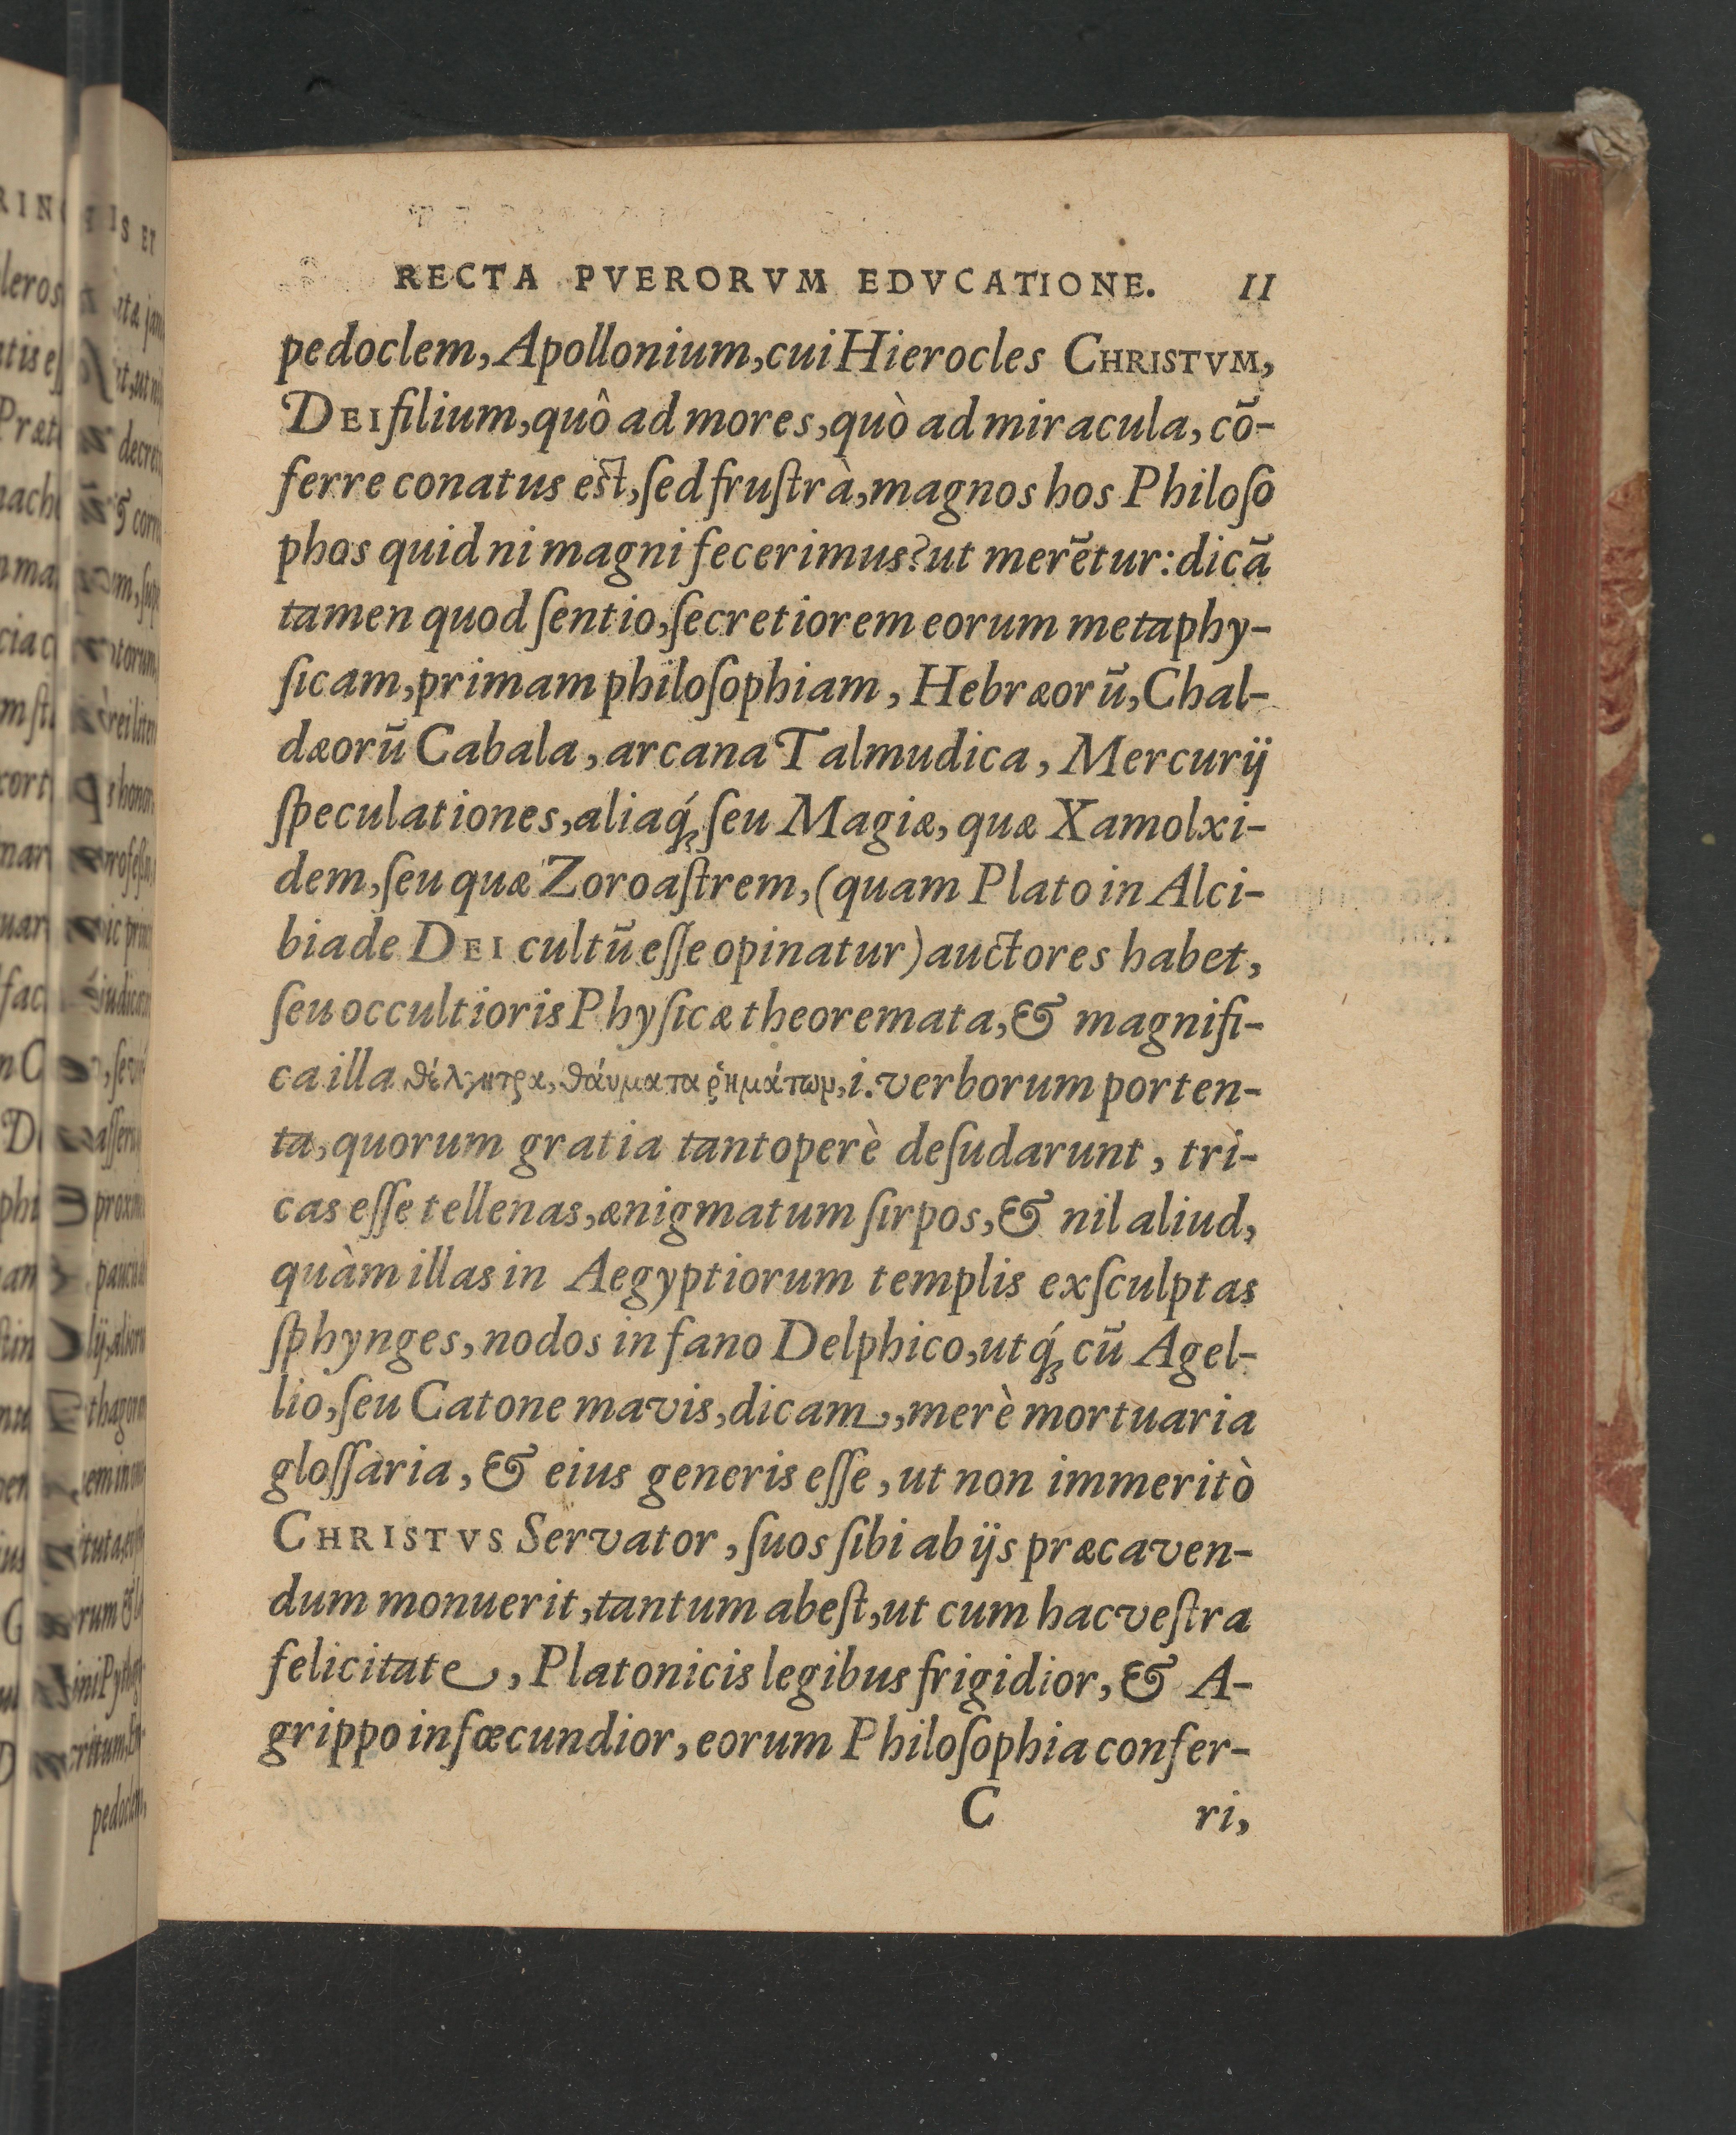 RECTA PVERORVM EDVCATIONE. 11
pedoclem, Apollonium, cui Hierocles CHRISTVM,
DEI filium, quô ad mores, quò ad miracula, cō-
ferre conatus est, ſed fruſtrà, magnos hos Philoſo
phos quid ni magni fecerimus? ut merētur: dicā
tamen quod ſentio, ſecretiorem eorum metaphy-
ſicam, primam philoſophiam, Hebræorū, Chal-
dæorū Cabala, arcana Talmudica, Mercurij
ſpeculationes, aliaq́; ſeu Magiæ, quæ Xamolxi-
dem, ſeu quæ Zoroaſtrem, (quam Plato in Alci-
biade DEI cultū eſſe opinatur) auctores habet,
ſeu occultioris Phyſicæ theoremata, & magnifi-
ca illa θέλγητρα, θάυματα ῥημάτων, i. verborum porten-
ta, quorum gratia tantoperè deſudarunt, tri-
cas eſſe tellenas, ænigmatum ſirpos, & nil aliud,
quàm illas in Aegyptiorum templis exſculptas
ſphynges, nodos in fano Delphico, utq́; cū Agel-
lio, ſeu Catone mavis, dicam, merè mortuaria
gloſſaria, & eius generis eſſe, ut non immeritò
CHRISTVS Servator, ſuos ſibi ab ijs præcaven-
dum monuerit, tantum abeſt, ut cum hac veſtra
felicitate, Platonicis legibus frigidior, & A-
grippo infœcundior, eorum Philoſophia confer-
C ri,